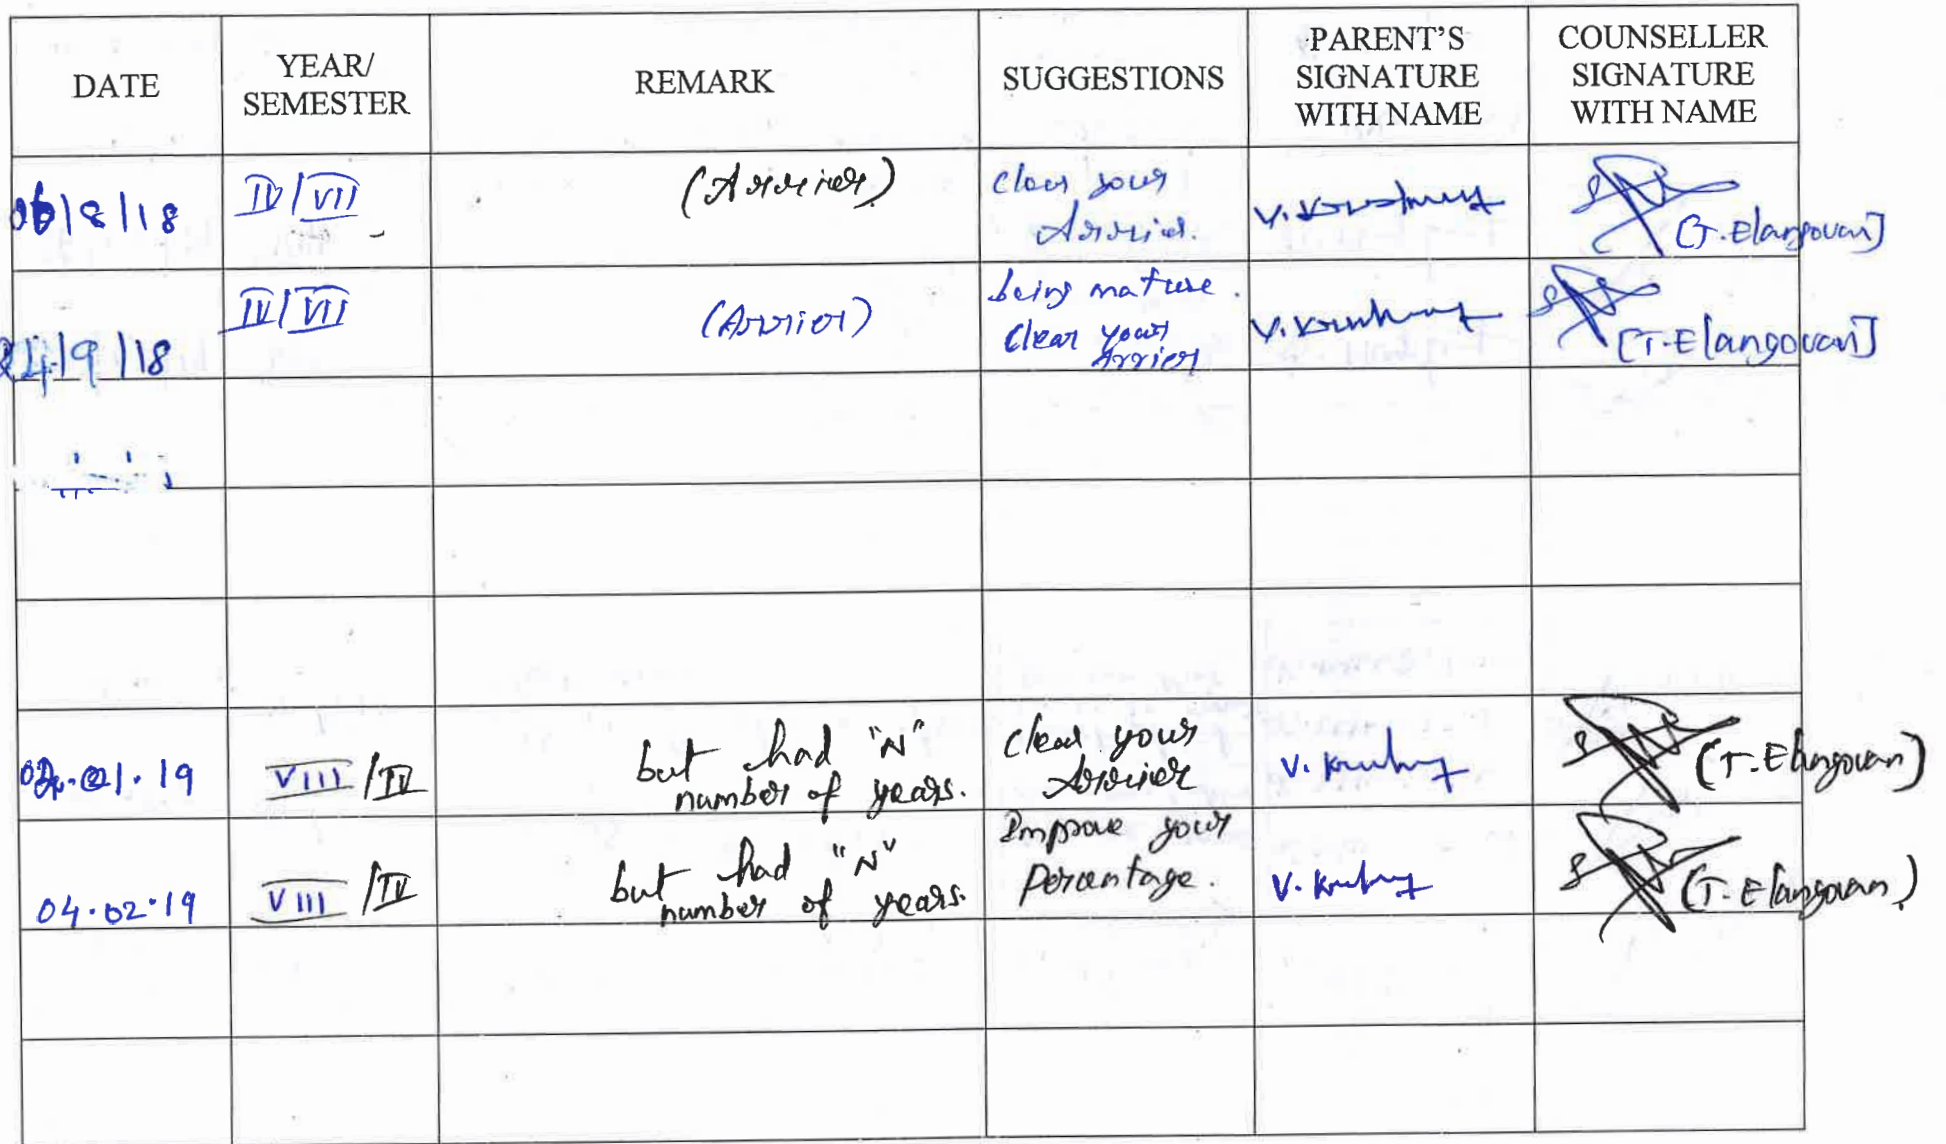 DATE
YEAR/
SEMESTER
REMARK
SUGGESTIONS
PARENT'S
SIGNATURE
WITH NAME
COUNSELLER
SIGNATURE
WITH NAME
06/8/18
IV/VII
(Arrier)
clear your
Arrier.
[T.Elangovan]
24/9/18
IV/VII
(Arrier)
being mature.
Clear your
Arrier
[T.Elangovan]
01.19
VIII/IV
but had "N"
number of years.
Clear your
Arrier
(T.Elangovan)
04.02.19
VIII/IV
but had "N"
number of years.
Improve your
Percentage.
(T.Elangovan)